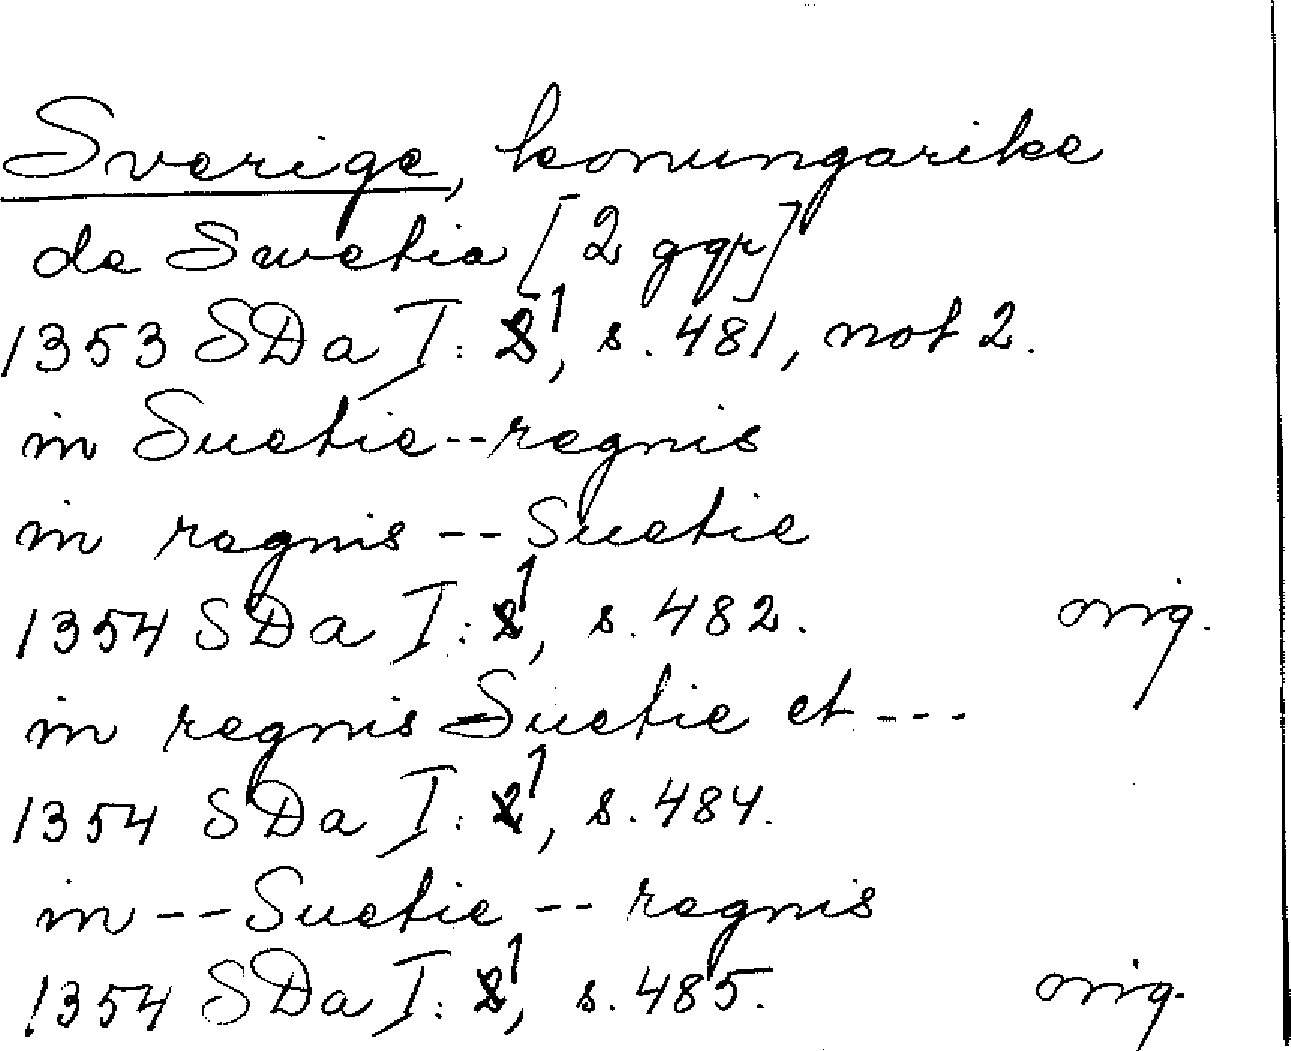 Sverige, konungarike
de Swetia [2 ggr]
1353 SDa I:1, s. 481, not 2.
in Suetie--regnis
in regnis -- Suetie
1354 SDa I:1, s. 482. orig.
in regnis Suetie et ---
1354 SDa I:1, s. 484.
in -- Suetie -- regnis
1354 SDa I:1, s. 485. orig.